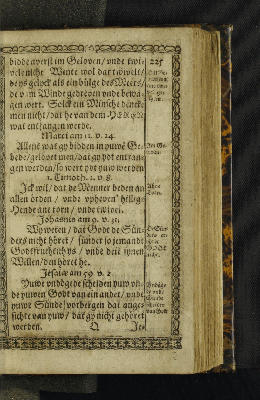 bidde averst im Geloven / unde twi-
vele nicht Wente wol dar twivelt /
de ys gelock als ein bülge des Meers /
de vam Winde gedreven unde bewa-
gen wert. Solck ein Minsche dencke
men nicht / dat he van dem HEREN
wat entfangen werde.
Marci am 11. v. 24.
Allent wat gy bidden in yuwē Ge-
bede / gelövet men / dat gy ydt entfan-
gen werden / so wert ydt yuw
1. Timoth. 2. v. 8.
Ick wil / dat de Menner beden an
allen örden / unde upheven hillige
Hende ane torn / unde twivel.
Johannis am 9. v. 31.
Wy weten / dat Godt de Sün-
ders nicht höret / sünder so jemandt
Godtfruchtich ys / unde deit synen
Willen / den höret he.
Jesaiæ am 59. v. 2
Yuwe undögede scheiden yuw un-
de yuwen Godt van ein ander / unde
yuwe Sünde vorbergen dat ange-
sichte van yuw / dat gy nicht gehöret
werden.
Q
225